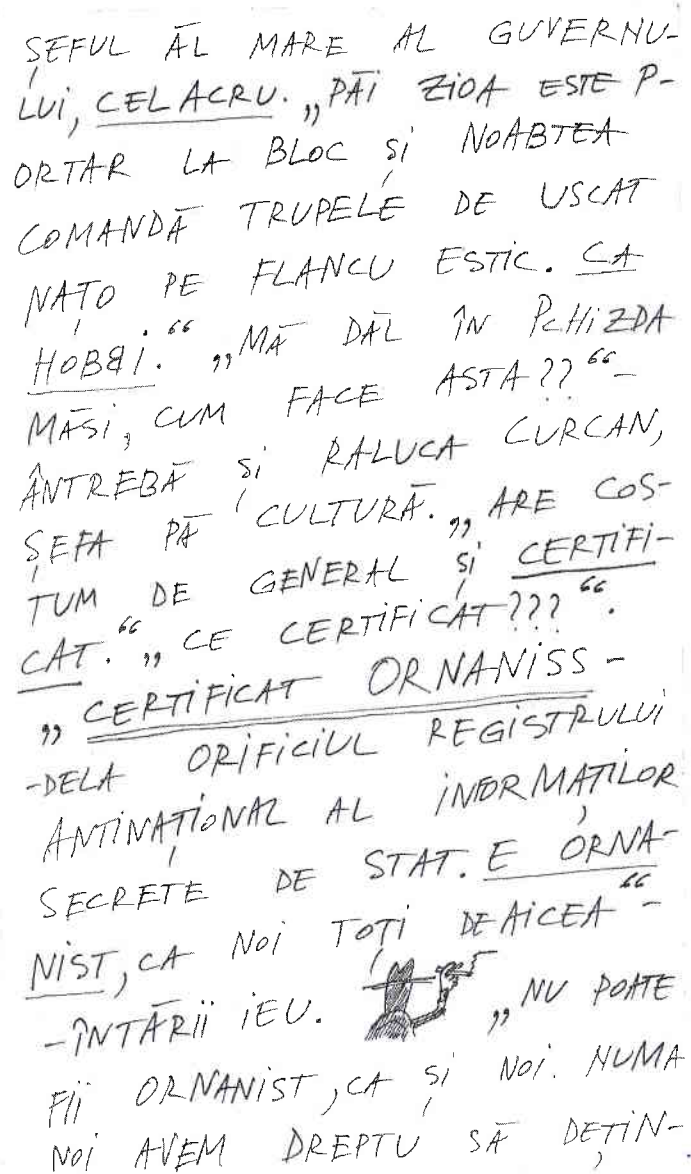 ȘEFUL ĀL MARE AL GUVERNU-
LUI, CEL ACRU. „PĀI ZIOA ESTE P-
ORTAR LA BLOC ȘI NOABTEA
COMANDĀ TRUPELE DE USCAT
NAȚO PE FLANCU ESTIC. CA
HOBBI.“ „MĀ DĀL ÎN PCHIZDA
MĀSI, CUM FACE ASTA??“-
ÂNTREBĀ ȘI RALUCA CURCAN,
ȘEFA PĀ CULTURĀ. „ARE COS-
TUM DE GENERAL ȘI CERTIFI-
CAT.“ „CE CERTIFICAT???“.
„CERTIFICAT ORNANISS-
-DELA ORIFICIUL REGISTRULUI
ANTINAȚIONAL AL INFORMAȚILOR
SECRETE DE STAT. E ORNA-
NIST, CA NOI TOȚI DEAICEA“-
-ÎNTĀRII IEU. „NU POATE
FII ORNANIST, CA ȘI NOI. NUMA
NOI AVEM DREPTU SĀ DEȚIN-